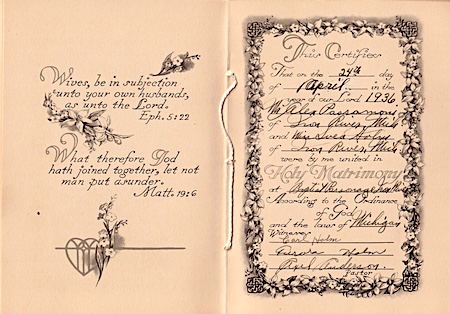 Wives, be in subjection
unto your own husbands,
as unto the Lord.
Eph. 5:22
What therefore God
hath joined together, let not
man put asunder.
Matt. 19:6
This Certifies
That on the 24th day
of April in the
year of our Lord 1936
of Iron River, Mich
and Miss
of Iron River, Mich
were by me united in
Holy Matrimony
at Baptist Parsonage
According to the Ordinance
of God
and the laws of Michigan
Witnesses
Carl Holm
Holm
Axel Anderson
Pastor